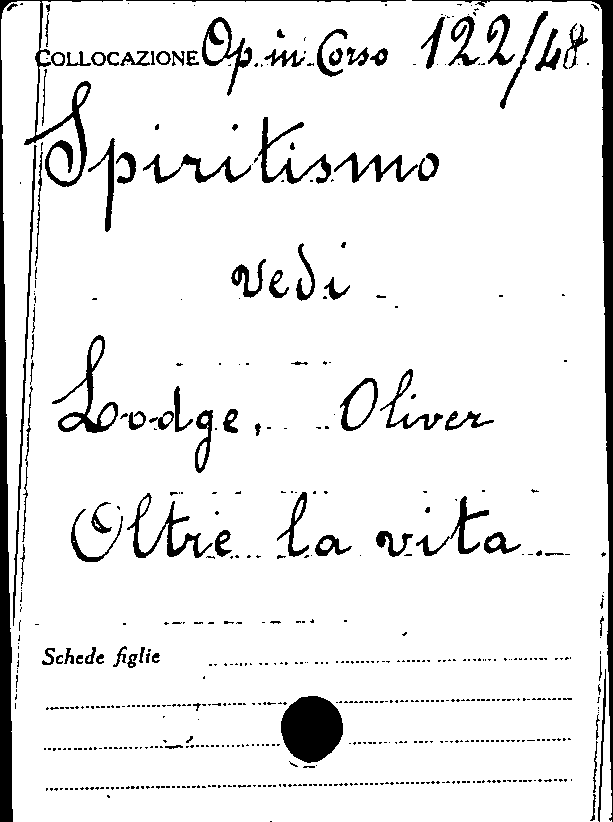 COLLOCAZIONE Op. in Corso 122/48
Spiritismo
vedi
Lodge, Oliver
Oltre la vita
Schede figlie